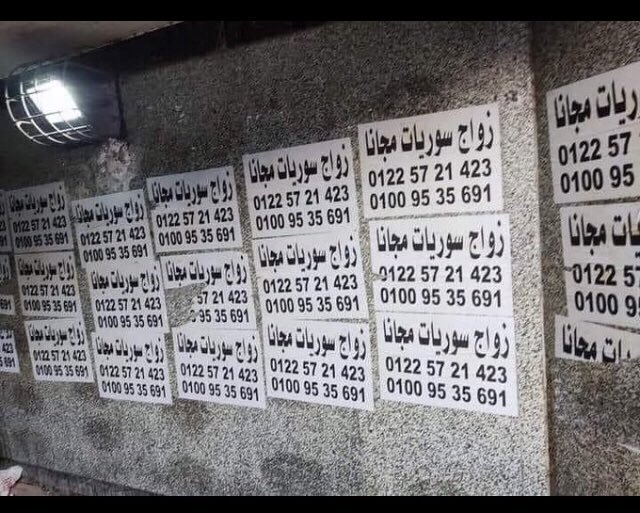 زواج سوريات مجانا
0122 57 21 423
0100 95 35 691
زواج سوريات مجانا
0122 57 21 423
0100 95 35 691
زواج سوريات مجانا
0122 57 21 423
0100 95 35 691
زواج سوريات مجانا
0122 57 21 423
0100 95 35 691
زواج سوريات مجانا
0122 57 21 423
0100 95 35 691
ريات مجانا
0122 57
0100 95
زواج سوريات مجانا
0122 57 21 423
0100 95 35 691
زواج سوريات مجانا
0122 57 21 423
0100 95 35 691
زواج سوريات مجانا
57 21 423
95 35 691
زواج سوريات مجانا
0122 57 21 423
0100 95 35 691
زواج سوريات مجانا
0122 57 21 423
0100 95 35 691
يات مجانا
0122 5
0100 9
691
زواج سوريات مجانا
0122 57 21 423
0100 95 35 691
زواج سوريات مجانا
0122 57 21 423
0100 95 35 691
زواج سوريات مجانا
0122 57 21 423
0100 95 35 691
زواج سوريات مجانا
0122 57 21 423
0100 95 35 691
زواج سوريات مجانا
0122 57 21 423
0100 95 35 691
ات مجانا